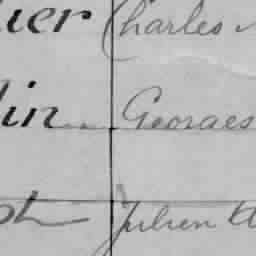 uier Charles
lin Georges
ph Julien